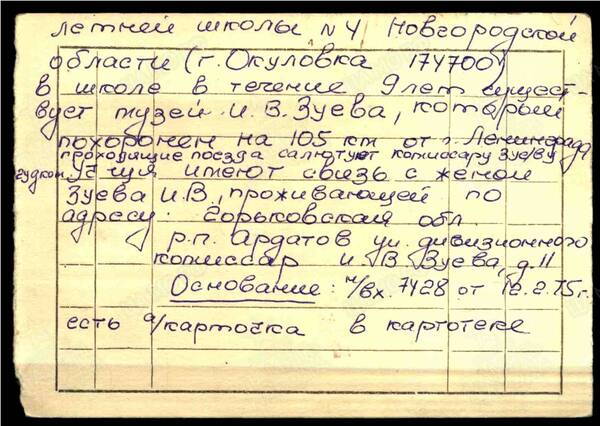 летней школы № 4 Новгородской
области (г. Окуловка 174700)
в школе в течение 9 лет сущест-
вует музей И.В. Зуева, который
похоронен на 105 км от г. Ленинграда
проходящие поезда салютуют комиссару Зуеву
гудком. Уч-ся имеют связь с женой
Зуева И.В., проживающей по
адресу: Горьковская обл
р.п. Ардатов ул. дивизионного
комиссар И.В. Зуева, д. 11
Основание: н/вх. 7428 от 12.2.75 г.
есть а/карточка в картотеке